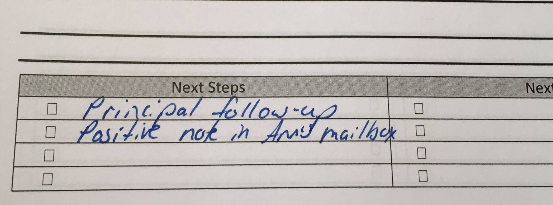 Next Steps
Next
Principal follow-up
Positive note in Amy mailbox